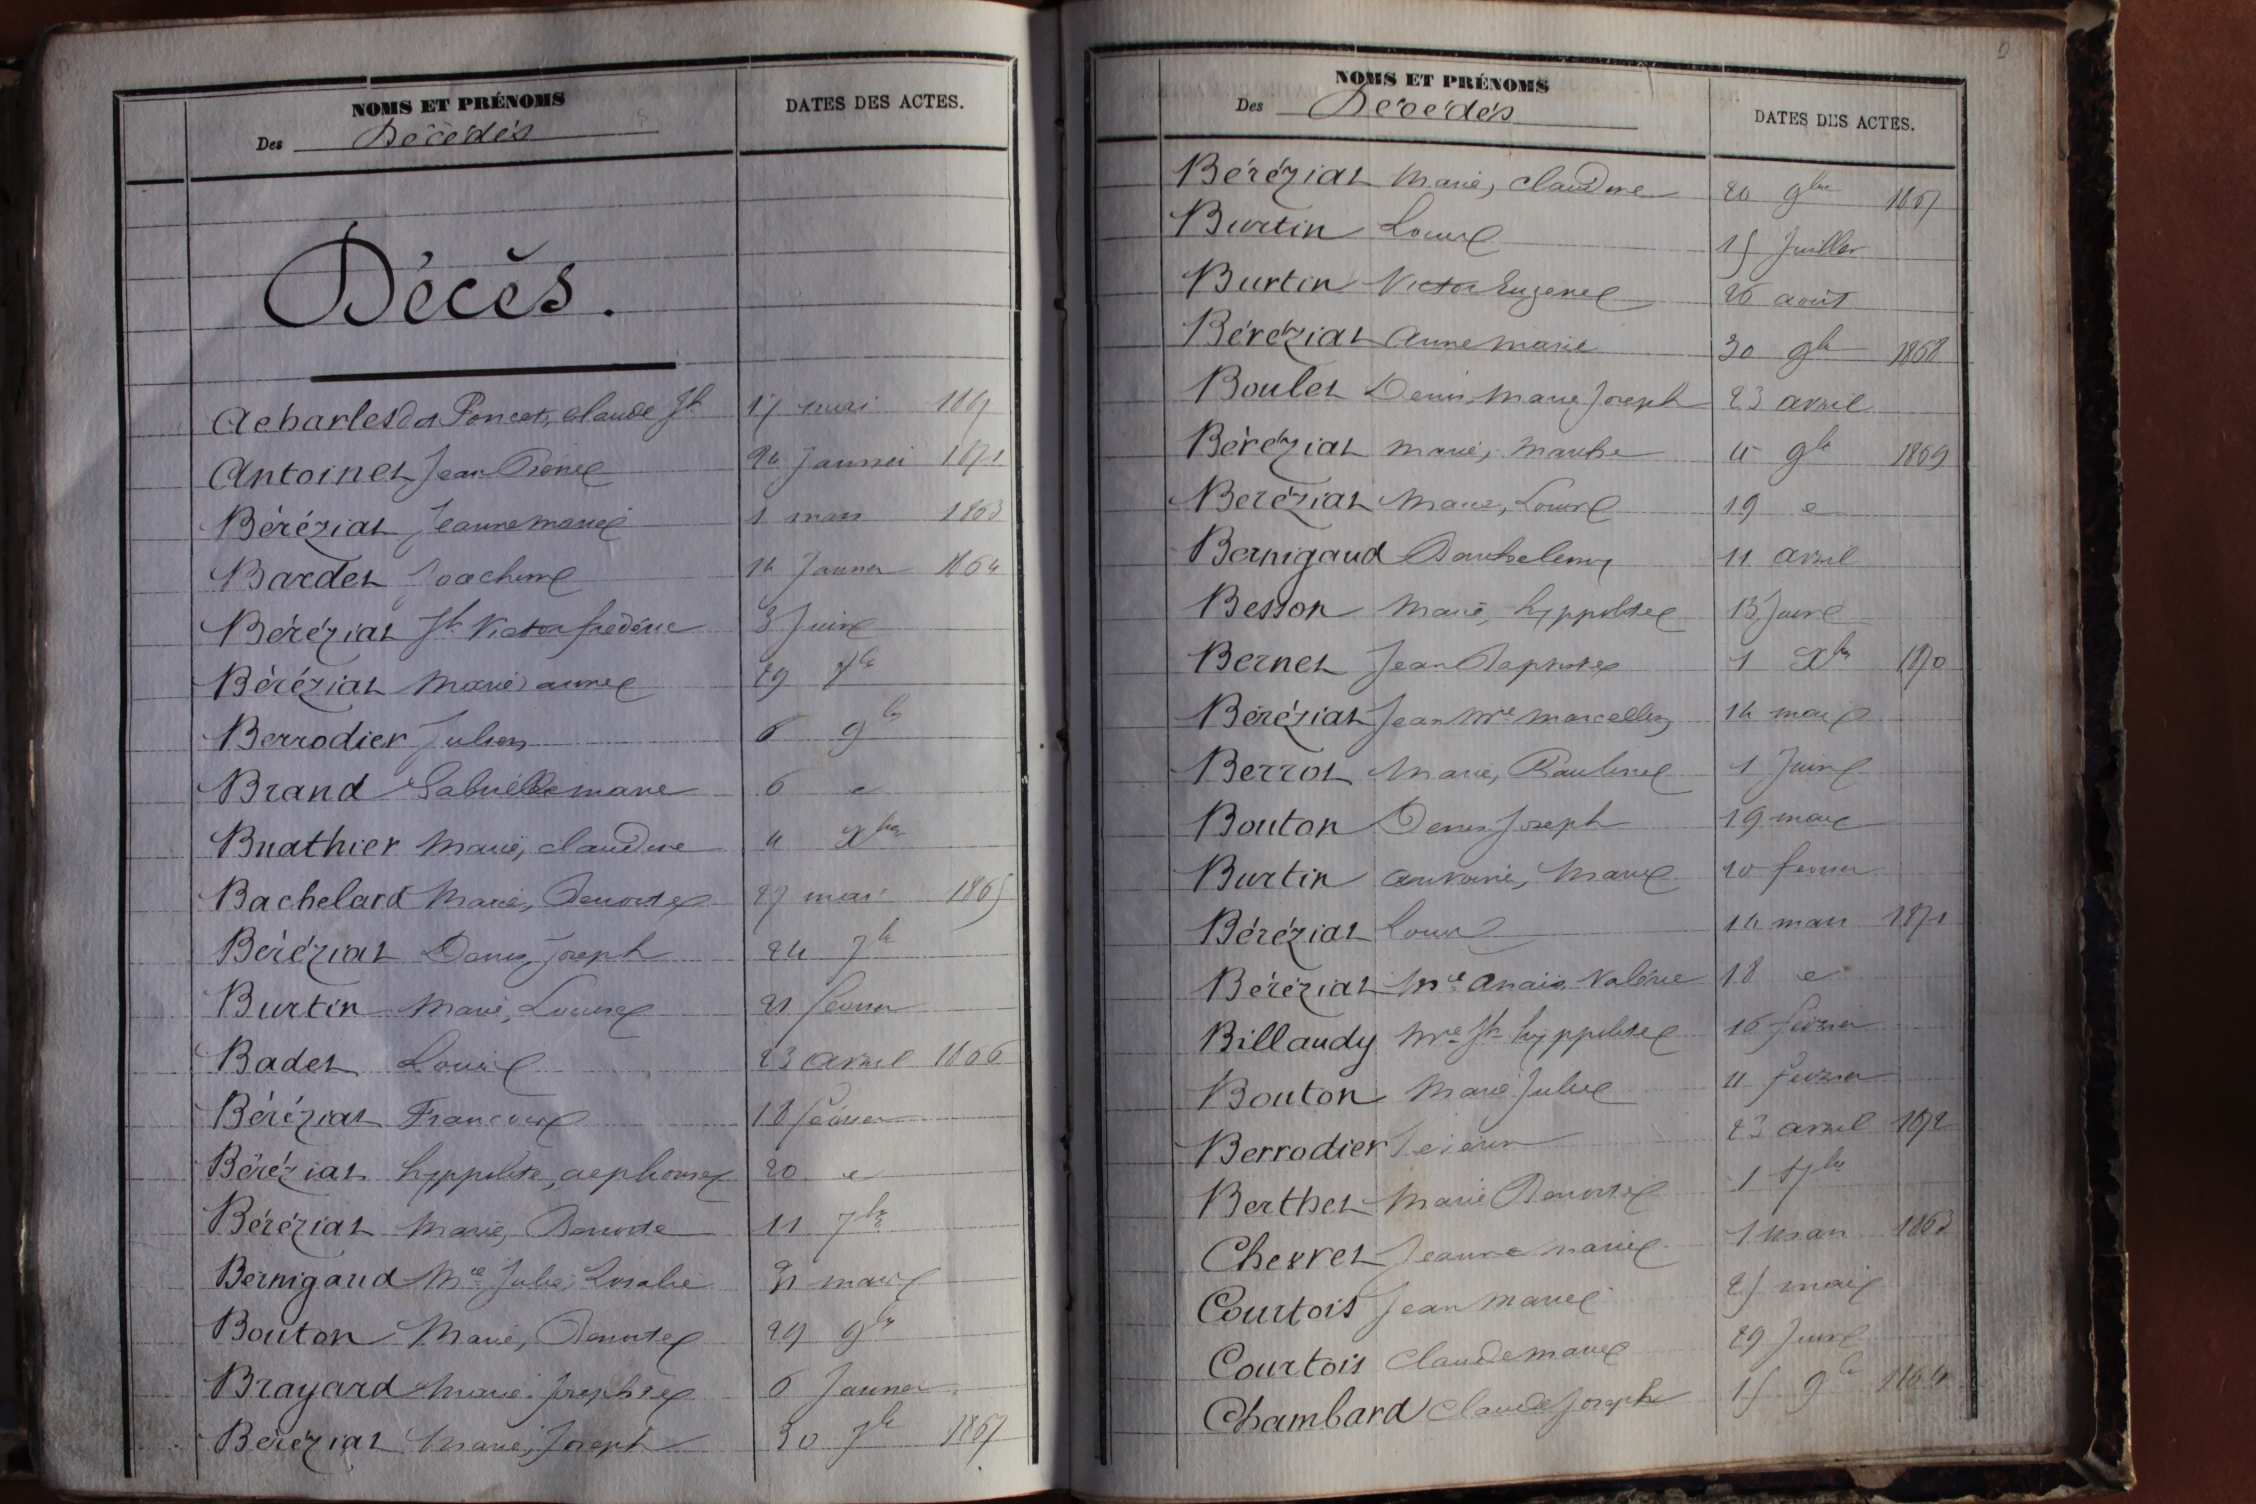 NOMS ET PRÉNOMS
Des Décédés
DATES DES ACTES.
Décès.
Acharles dit Poncet, Claude Jh 17 mai 1867
Antoinet Jean Pierre 24 Janvier 1871
Béréziat Jeanne marie 1 mars 1863
Bardet Joachim 14 Janvier 1864
Béréziat Jh Victor frédéric 3 Juin
Béréziat Marie anne 29 7bre
Berrodier Julien 6 9bre
Brand Gabrielle marie 6 "
Buathier Marie, claudine 4 Xbre
Bachelard Marie, Benoite 27 mai 1865
Béréziat Denis, Joseph 24 7bre
Burtin Marie, Louise 21 février
Badet Louis 23 avril 1866
Béréziat François 18 février
Béréziat hyppolite, alphonse 20 "
Béréziat Marie, Benoite 11 7bre
Bernigaud Mie Julie, Rosalie 21 mars
Bouton Marie, Benoite 29 9bre
Brayard Marie Josephte 6 Janvier
Béréziat Marie, Joseph 30 7bre 1867
NOMS ET PRÉNOMS
Des Décédés
DATES DES ACTES.
Béréziat Marie, Claudine 20 9bre 1867
Burtin Louis 15 Juillet
Burtin Victor Eugène 26 août
Béréziat Anne Marie 30 9bre 1868
Boulet Denis Marie Joseph 23 avril
Béréziat Marie, Marthe 4 9bre 1869
Béréziat Marie, Louise 19 "
Bernigaud Barthelemy 11 avril
Besson Marie, hyppolite 13 Juin
Bernet Jean Baptiste 1 Xbre 1870
Béréziat Jean Mie Marcellin 14 mai
Berrot Marie, Pauline 1 Juin
Bouton Denis Joseph 19 mai
Burtin Antoine, Marie 20 février
Béréziat Louis 14 mars 1871
Béréziat Mie Anais Valérie 18 "
Billaudy Mie Jh hyppolite 16 février
Bouton Marie Julie 11 février
Berrodier Séverin 23 avril 1872
Berthet Marie Benoite 1 7bre
Chevret Jeanne marie 1 mars 1863
Courtois Jean Marie 25 mai
Courtois Claude marie 29 Juin
Chambard Claude Joseph 15 9bre 1864